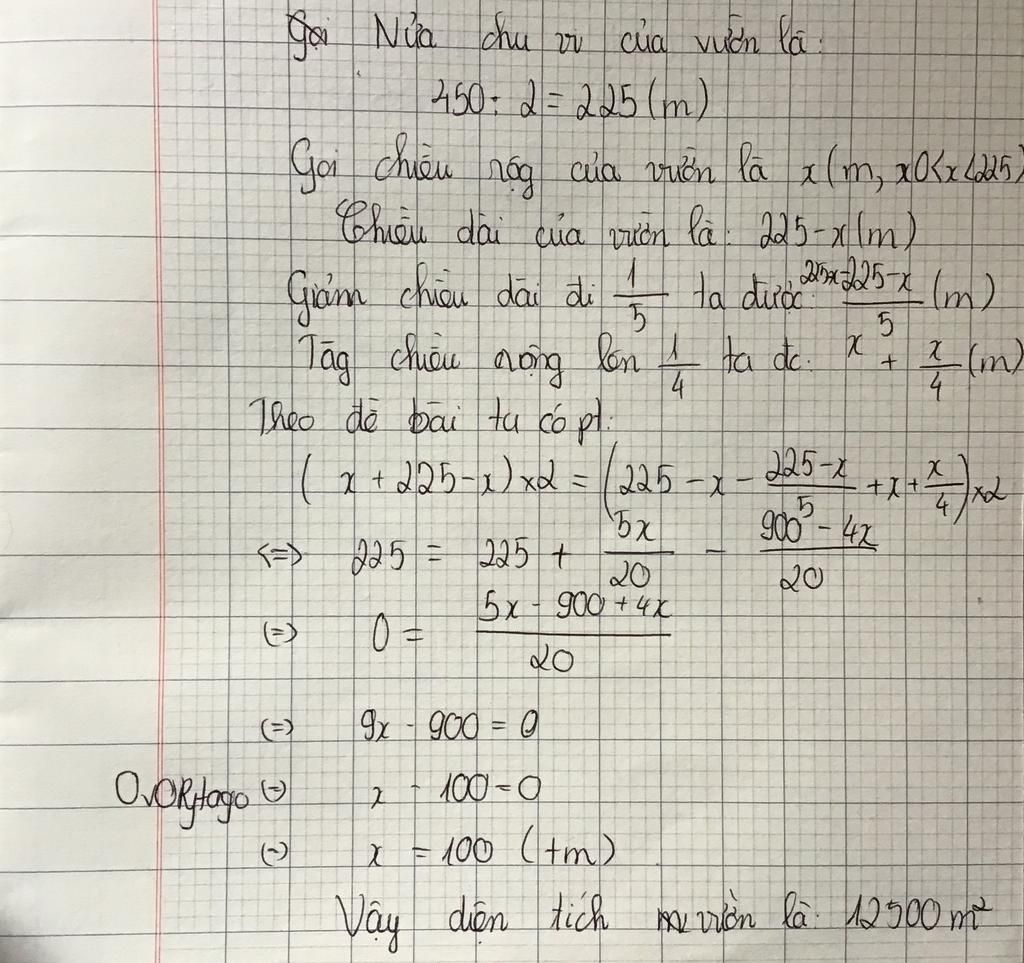 Gọi Nửa chu vi của vườn là:
450 : 2 = 225 (m)
Gọi chiều rộg của vườn là x (m, x0<x<225)
Chiều dài của vườn là: 225-x (m)
Giảm chiều dài đi 1/5 ta được: (225-x)/5 (m)
Tăg chiều rộng lên 1/4 ta đc: x + x/4 (m)
Theo đề bài ta có pt:
(x + 225 - x) × 2 = (225 - x - (225-x)/5 + x + x/4) × 2
<=> 225 = 225 + 5x/20 - (900 - 4x)/20
(=) 0 = (5x - 900 + 4x)/20
(=) 9x - 900 = 0
(=) x - 100 = 0
(=) x = 100 (tm)
Vậy diện tích vườn là: 12500 m²